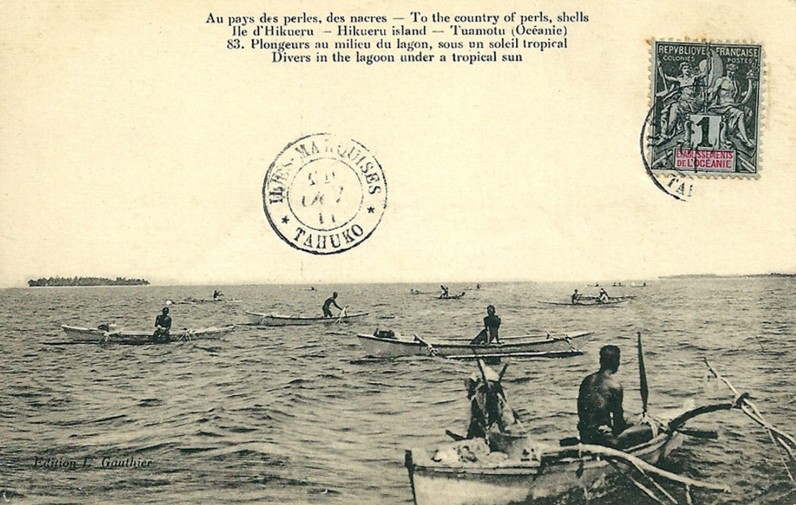 Au pays des perles, des nacres — To the country of perls, shells
Ile d'Hikueru — Hikueru island — Tuamotu (Océanie)
83. Plongeurs au milieu du lagon, sous un soleil tropical
Divers in the lagoon under a tropical sun
REPUBLIQUE FRANÇAISE
COLONIES POSTES
1
ETABLISSEMENTS
DE L'OCÉANIE
TA
ILES-MARQUISES
OCT
11
* TAHUKO *
Edition L. Gauthier